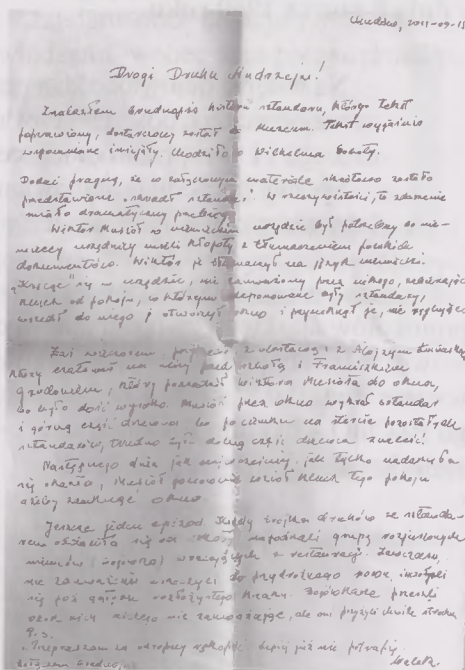 2011-09-15
Drogi Druhu Andrzeju!
Znalazłem brudnopis historii sztandaru, którego tekst
poprawiony, dostarczony został do Muzeum. Tekst wyjaśnia
wspomniane inicjały. Chodziło o Wilhelma
Dodać pragnę, że w załączonym materiale skrótowo zostało
przedstawione sztandaru. W rzeczywistości, to zdarzenie
miało dramatyczny przebieg.
Wiktor Masioł w niemieckim urzędzie był potrzebny bo nie-
mieccy urzędnicy mieli kłopoty z tłumaczeniem polskich
dokumentów. Wiktor je tłumaczył na język niemiecki.
się w urzędzie, nie zauważony przez nikogo,
klucz od pokoju, w którym deponowane były sztandary,
wszedł do niego i otworzył okno i przymknął je, nie
Zaś wieczorem z z Alojzym
który czatował na ulicy pod szkołą i Franciszkiem
który Wiktora Masioła do okna,
bo było dość wysoko. Masioł przez okno wykradł sztandar
i górną część drzewca bo po ciemku na stercie pozostałych
sztandarów, trudno było dolną część drzewca znaleźć.
Następnego dnia jak najwcześniej, jak tylko nadarzyła
się okazja, Masioł ponownie wziął klucz tego pokoju
ażeby zamknąć okno.
Jeszcze jeden epizod. Kiedy trójka druhów ze sztanda-
rem oddaliła się od szkoły napotkali grupę rozjuszonych
niemców wracających z restauracji. Zawczasu,
nie zauważeni do przydrożnego rowu,
się pod gałęzie rozłożystego krzaku. przeszli
obok nich nikogo nie zauważając, ale oni przeżyli chwile strachu
P.S.
Przepraszam za lepiej już nie potrafię.